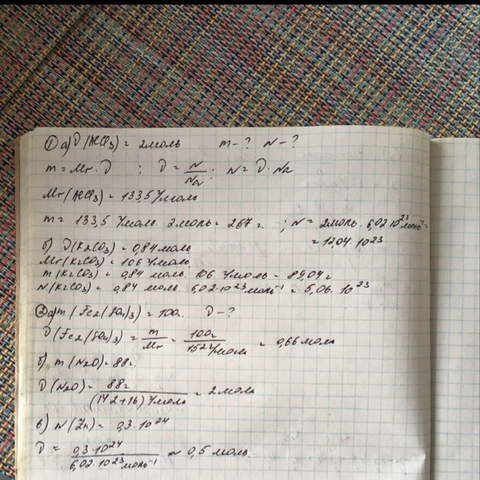 ① а) υ (AlCl₃) = 2 моль m - ? N - ?
m = Mr · υ ; υ = N/Na ; N = υ · Na
Mr (AlCl₃) = 133,5 г/моль
m = 133,5 г/моль · 2 моль = 267 г. ; N = 2 моль · 6,02·10²³ моль⁻¹ =
= 12,04 · 10²³
б) υ (K₂CO₃) = 0,84 моль
Mr (K₂CO₃) = 106 г/моль
m (K₂CO₃) = 0,84 моль · 106 г/моль = 89,04 г
N (K₂CO₃) = 0,84 моль · 6,02·10²³ моль⁻¹ = 5,06 · 10²³
② а) m (Fe₂(SO₄)₃) = 100 г. υ - ?
υ (Fe₂(SO₄)₃) = m/Mr = 100г/152 г/моль = 0,66 моль
б) m (N₂O) = 88 г.
υ (N₂O) = 88 г/(14·2+16) г/моль = 2 моль
в) N (Zn) = 0,3 · 10²⁴
υ = 0,3·10²⁴/6,02·10²³ моль⁻¹ ≈ 0,5 моль.